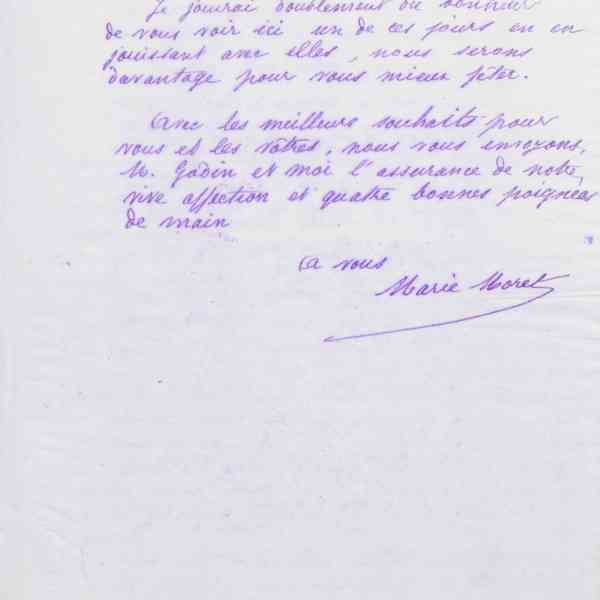 Je jouirai doublement du bonheur
de vous voir ici un de ces jours en en
jouissant avec elles, nous serons
davantage pour vous mieux fêter.
Avec les meilleurs souhaits pour
vous et les vôtres, nous vous envoyons,
M. Godin et moi l'assurance de notre
vive affection et quatre bonnes poignées
de main
A vous
Marie Moret